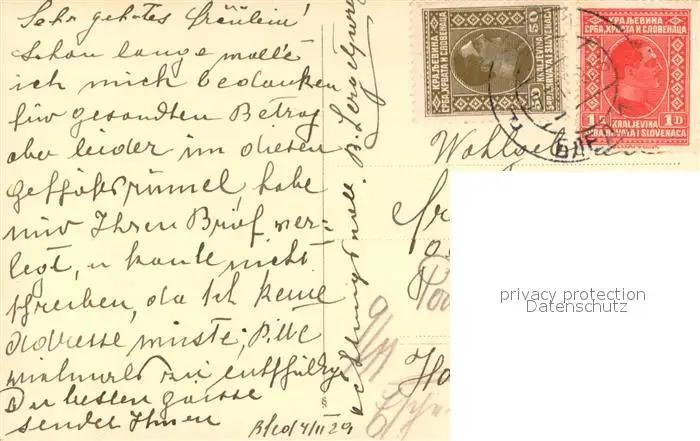 Sehr gehrtes Fräulein!
Schon lange wollte
ich mich bedanken
für gesandten Betrag
aber leider im diesen
habe
mir Ihren Brif ver=
legt, u konte nicht
schreiben, da ich keine
Adresse wuste; Bitte
vielmals zu entschuldig
Die besten Grüsse
sendet Ihnen
Bled 4/II 29
achtungsvoll. B.
КРАЉЕВИНА
СРБА, ХРВАТА И СЛОВЕНАЦА
50 50
KRALJEVINA
SRBA, HRVATA I SLOVENACA
КРАЉЕВИНА
СРБА, ХРВАТА И СЛОВЕНАЦА
1D 1D
KRALJEVINA
SRBA, HRVATA I SLOVENACA
privacy protection
Datenschutz